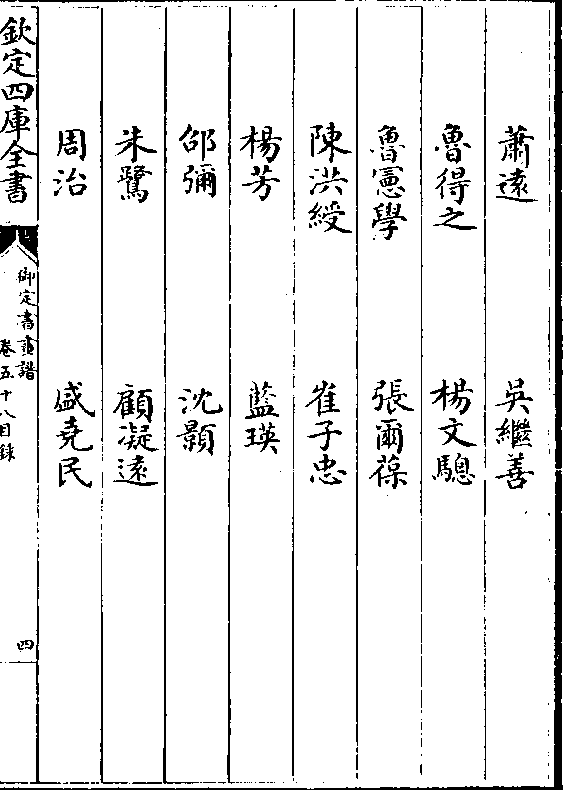 蕭遠　吳繼善
魯得之　楊文驄
魯憲學　張爾葆
陳洪綬　崔子忠
楊芳　藍瑛
邵彌　沈顥
朱鷺　顧凝遠
周治　盛堯民
欽定四庫全書
御定書畫譜
卷五十八目錄
四